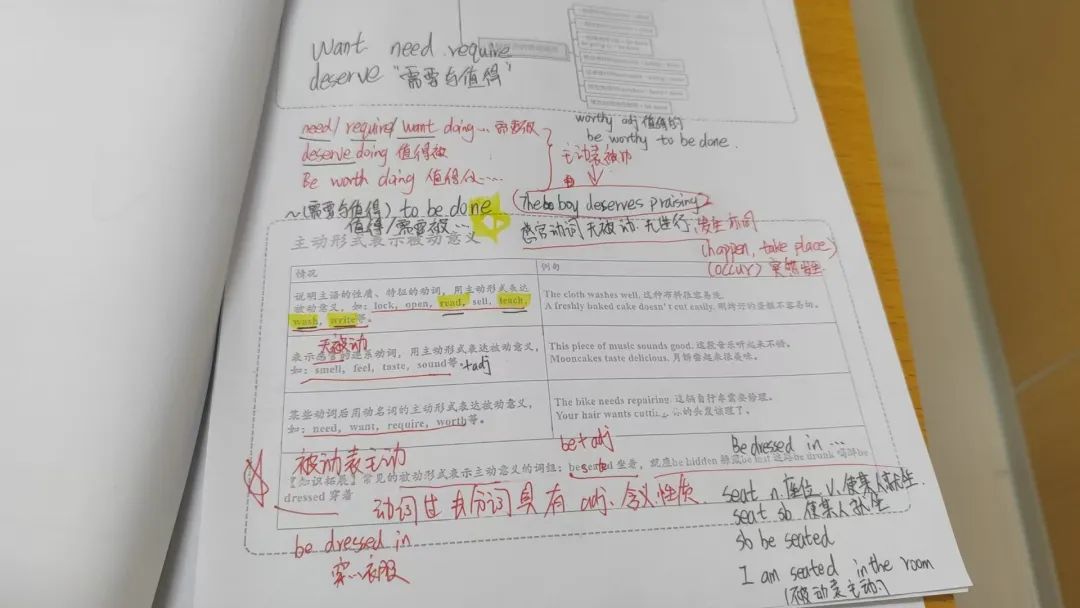 Want need require
deserve "需要与值得"
worthy adj 值得的
be worthy to be done.
need/require/want doing… 需要被
deserve doing 值得被
Be worth doing 值得
主动表被动
~(需要与值得) to be done
值得/需要被…
The boy deserves praising
感官动词无被动.无进行,
(happen, take place)
(occur)
主动形式表示被动意义
情况
例句
说明主语的性质、特征的动词，用主动形式表达
被动意义，如：lock, open, read, sell, teach,
wash, write等。
The cloth washes well. 这种布料很容易洗。
A freshly baked cake doesn't cut easily. 刚烤好的蛋糕不容易切。
无被动
表示感官的连系动词，用主动形式表达被动意义，
如：smell, feel, taste, sound等。+adj
This piece of music sounds good. 这段音乐听起来不错。
Mooncakes taste delicious. 月饼尝起来很美味。
某些动词后用动名词的主动形式表达被动意义，
如：need, want, require, worth等。
The bike needs repairing. 这辆自行车需要修理。
Your hair wants 你的头发该理了。
be+adj
Be dressed in …
被动表主动
【知识拓展】常见的被动形式表示主动意义的词组：be seated 坐着，be hidden be lost be drunk be
dressed 穿着
动词过去分词具有 adj. 含义性质.
be dressed in
穿…衣服
seat n.座位 v.使某人就坐.
seat sb 使某人就坐
sb be seated
I am seated in the room
(被动表主动)